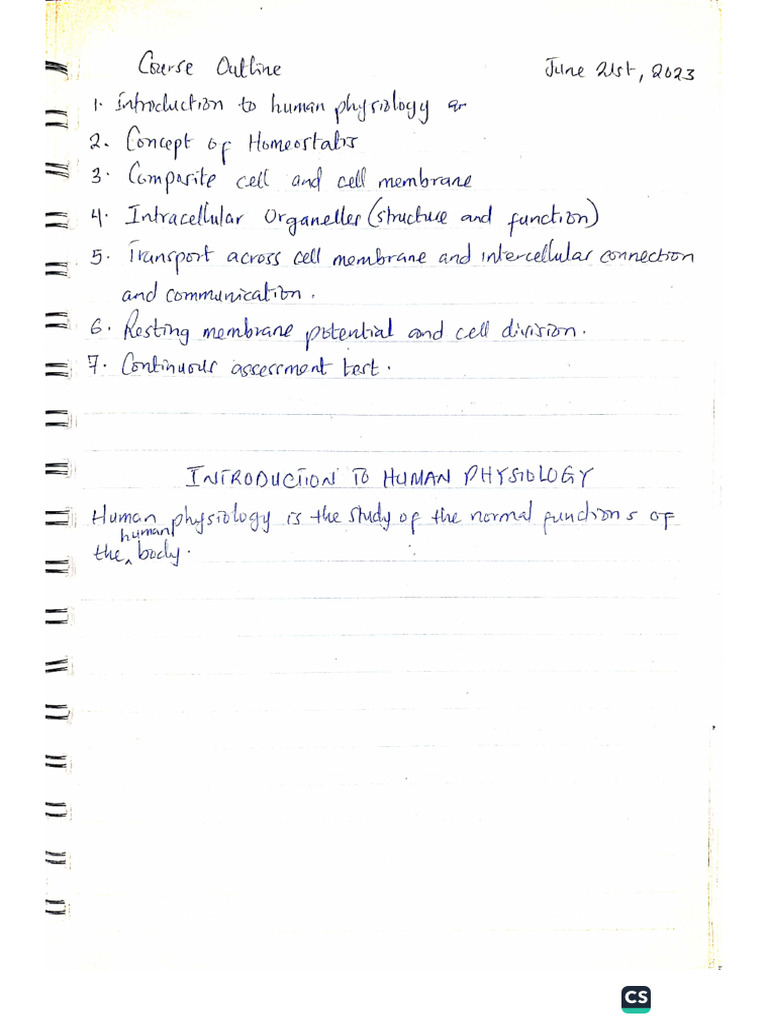 Course Outline June 21st, 2023
1. Introduction to human physiology ar
2. Concept of Homeostatis
3. Composite cell and cell membrane
4. Intracellular Organelles (structure and function)
5. Transport across cell membrane and intercellular connection
and communication.
6. Resting membrane potential and cell division.
7. Continuous assessment test.
INTRODUCTION TO HUMAN PHYSIOLOGY
Human physiology is the study of the normal functions of
the human body.
CS